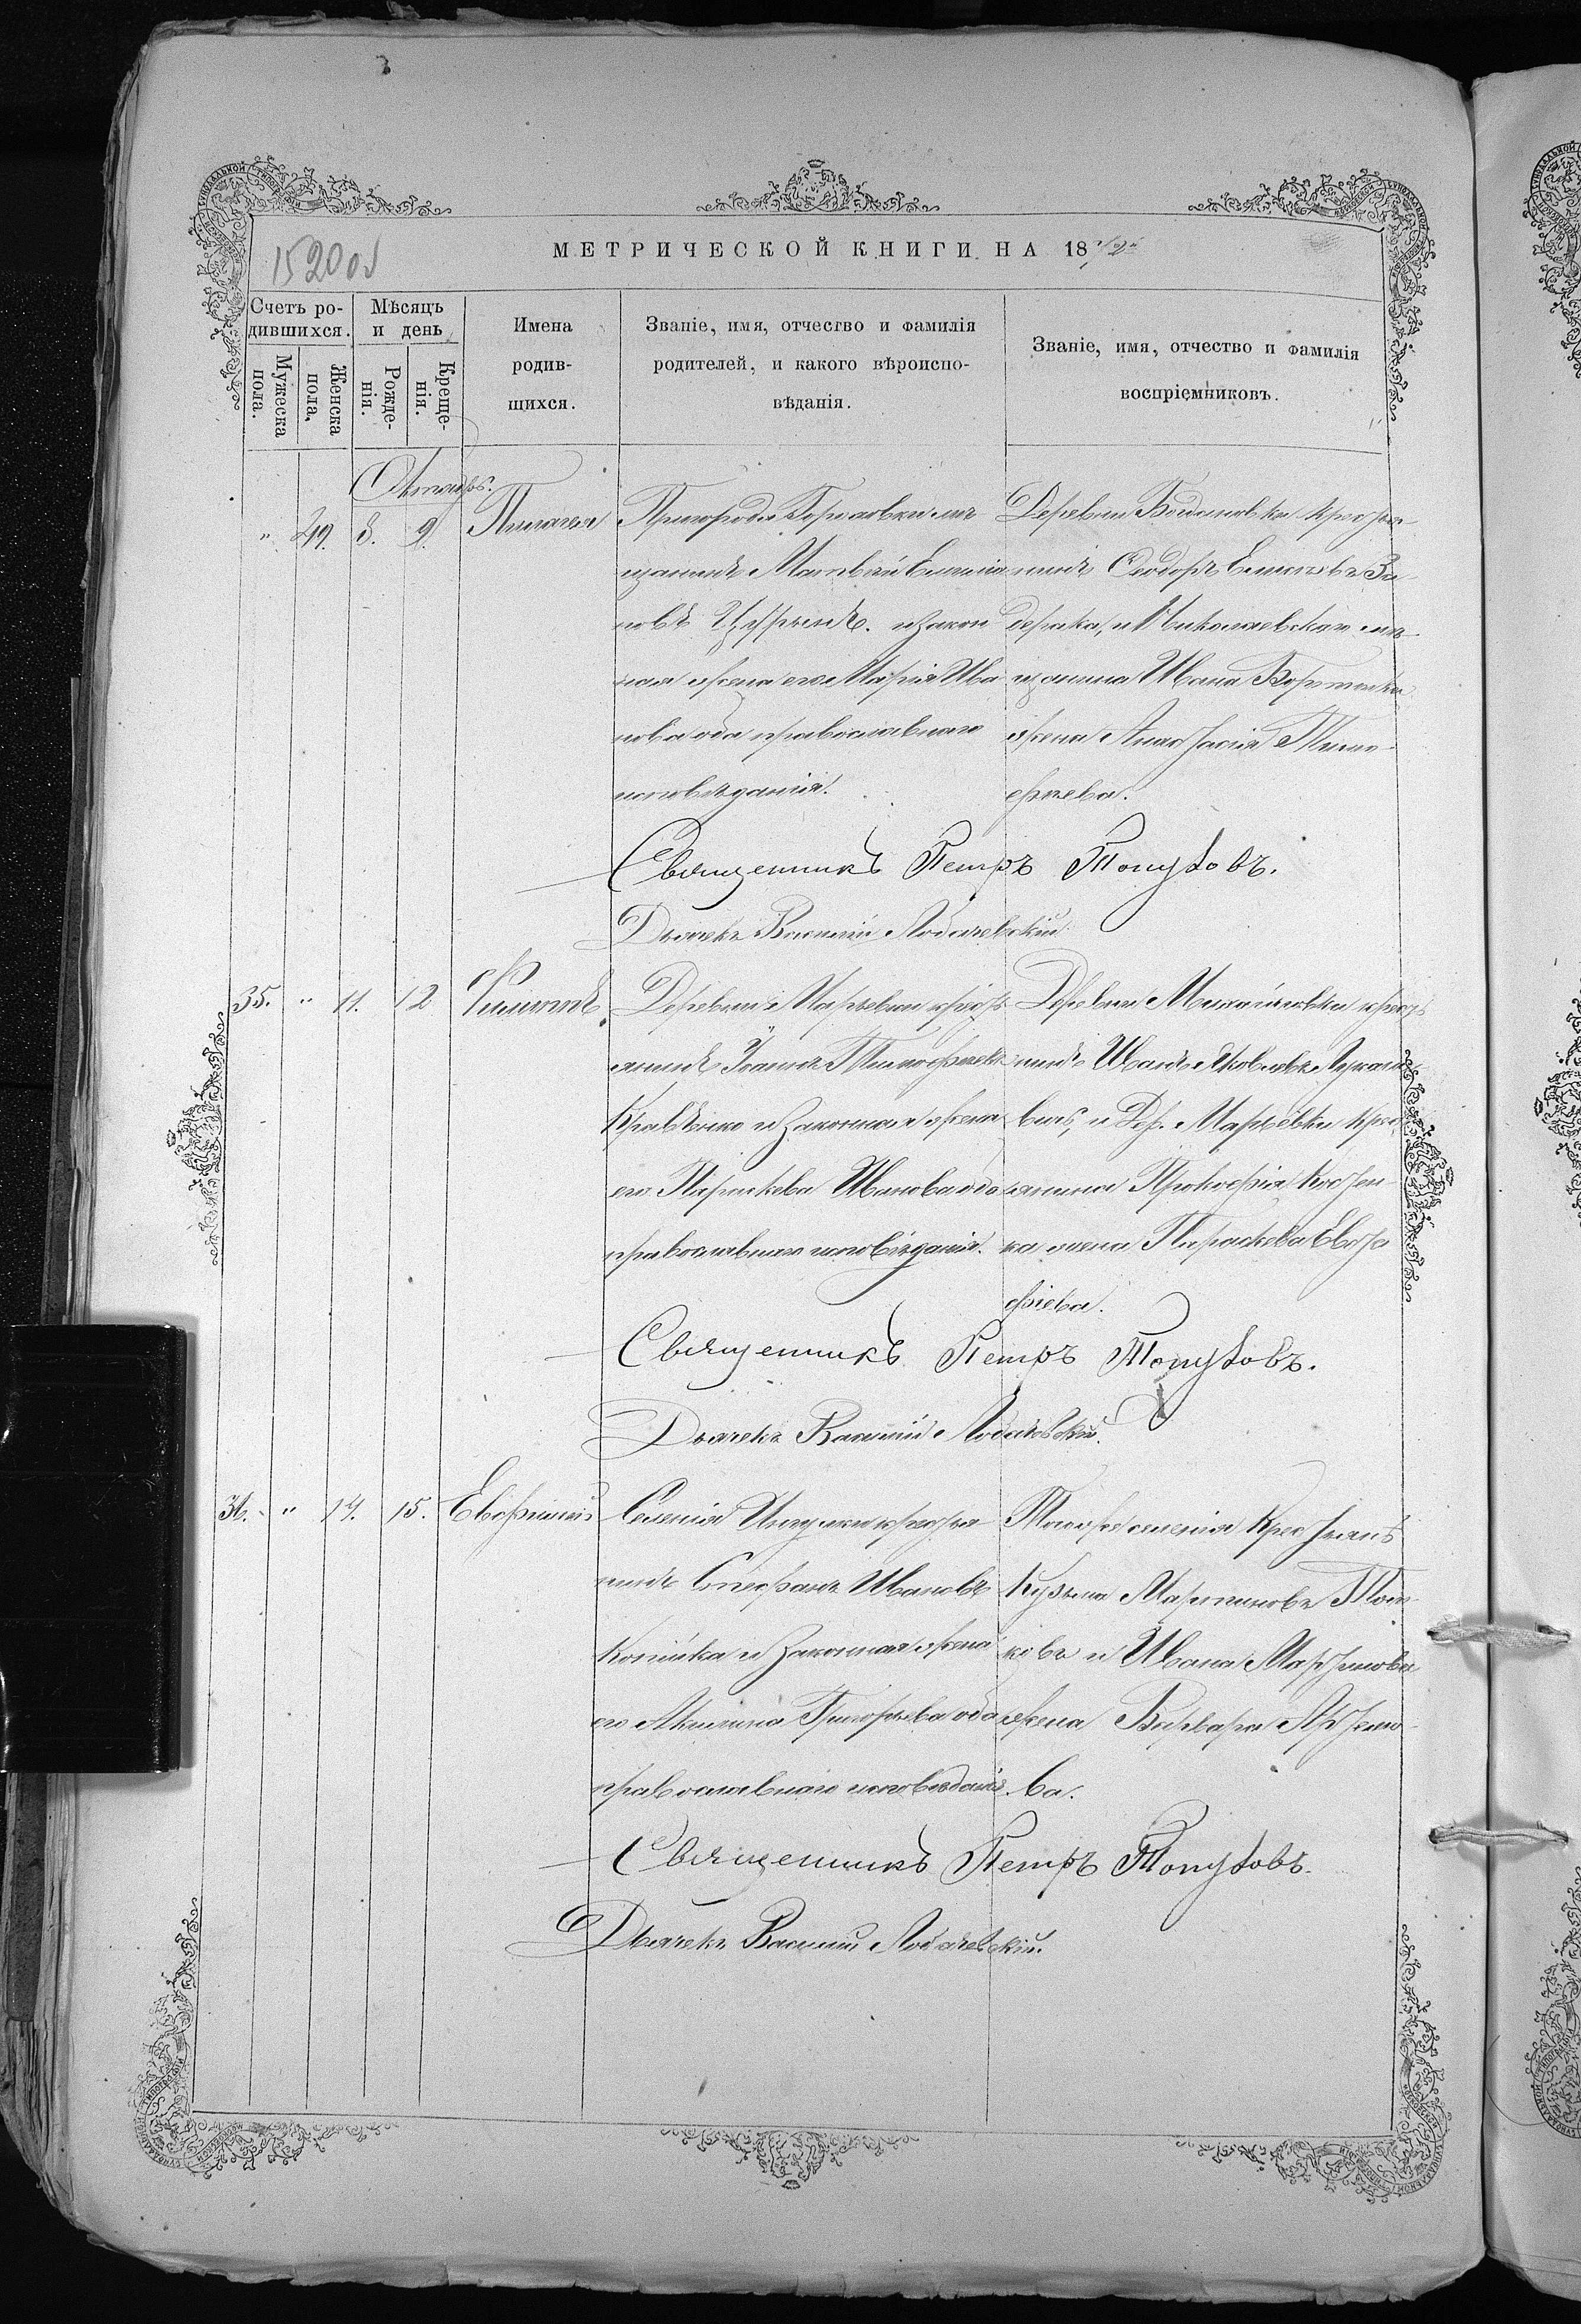 1520 об
МЕТРИЧЕСКОЙ КНИГИ НА 1872й
Счетъ ро-
дившихся.
Мужеска
пола.
Женска
пола.
Мѣсяцъ
и день
Рожде-
нія.
Креще-
нія.
Имена
родив-
шихся.
Званіе, имя, отчество и фамилія
родителей, и какого вѣроиспо-
вѣданія.
Званіе, имя, отчество и фамилія
воспріемниковъ.
Октябрь.
" 49. 8. 9. Пелагея
Пригорода мѣ-
щанинъ Матвѣй Емелія
новъ и закон
ная жена его Марія Ива
нова оба православнаго
исповѣданія.
Деревни Богдановки кресть-
янинъ Ѳеодоръ
и Николаевскаго мѣ-
щанина Ивана
жена Анастасія Тимо-
фѣева.
Священникъ Петръ Топузовъ.
Дьячекъ Василій Лобачевскій
35. " 11. 12 Филиппъ
Деревни Марьевки крест
янинъ Іоаннъ Тимофѣевъ
Кравченко и законная жена
его Параскева Иванова оба
православнаго исповѣданія.
Деревни Михайловки крест
нинъ Иванъ Яковлевъ
и Дер. Марьевки крес
янина Прокофія Костен
ка жена Параскева Евст
фіева.
Священникъ Петръ Топузовъ.
Дьячекъ Василій Лобачевскій.
36. " 14. 15. Евфимій
Селенія Ингулки крестья
нинъ Стефанъ Ивановъ
Копійка и законная жена
его Акилина Григорьева оба
православнаго исповѣданія.
Тогоже селенія Крестьянъ
Кузьма Мартиновъ
ковъ и Ивана Мартинова
жена Варвара Артемо-
ва.
Священникъ Петръ Топузовъ.
Дьячекъ Василій Лобачевскій.